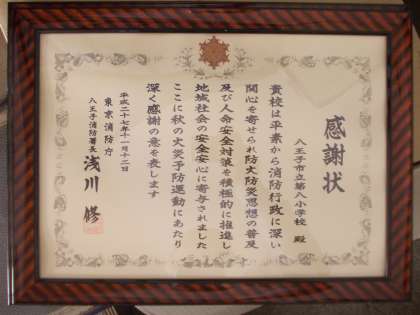 感謝状
八王子市立第八小学校 殿
貴校は平素から消防行政に深い
関心を寄せられ防火防災思想の普及
及び人命安全対策を積極的に推進し
地域社会の安全安心に寄与されました
ここに秋の火災予防運動にあたり
深く感謝の意を表します
平成二十七年十一月十二日
東京消防庁
八王子消防署長 浅川 修